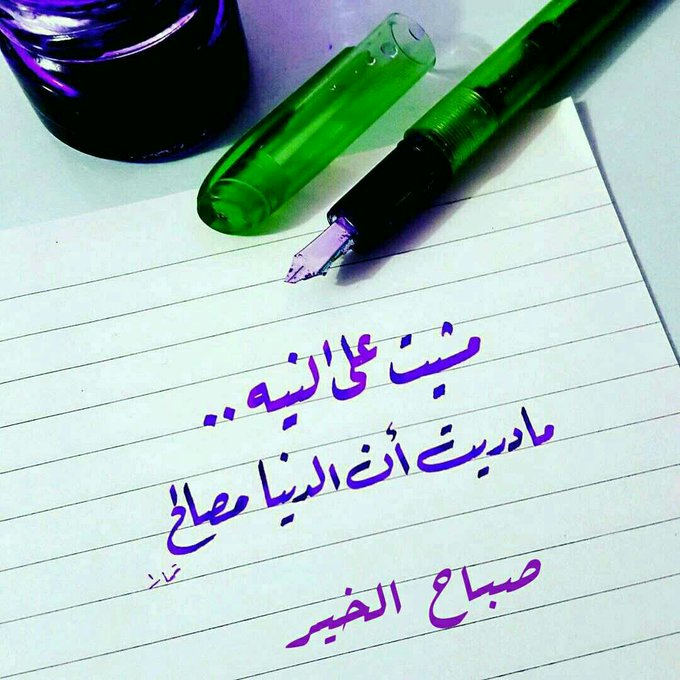 مشيت على النيه ..
مادريت أن الدنيا مصالح
صباح الخير